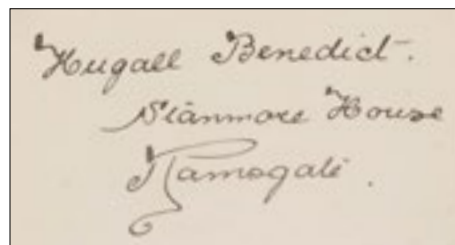 Hugall Benedict.
Stanmore House
Ramsgate.